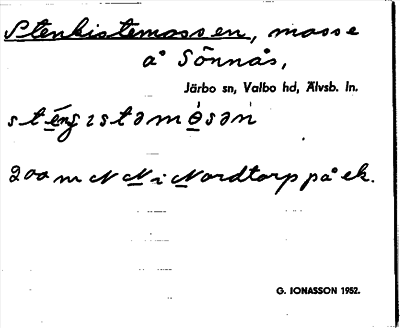 Stenkistemassen, masse
å Sönnås,
Järbo sn, Valbo hd, Älvsb. ln.
200 m N N i Nordtorp på ek.
G. JONASSON 1952.